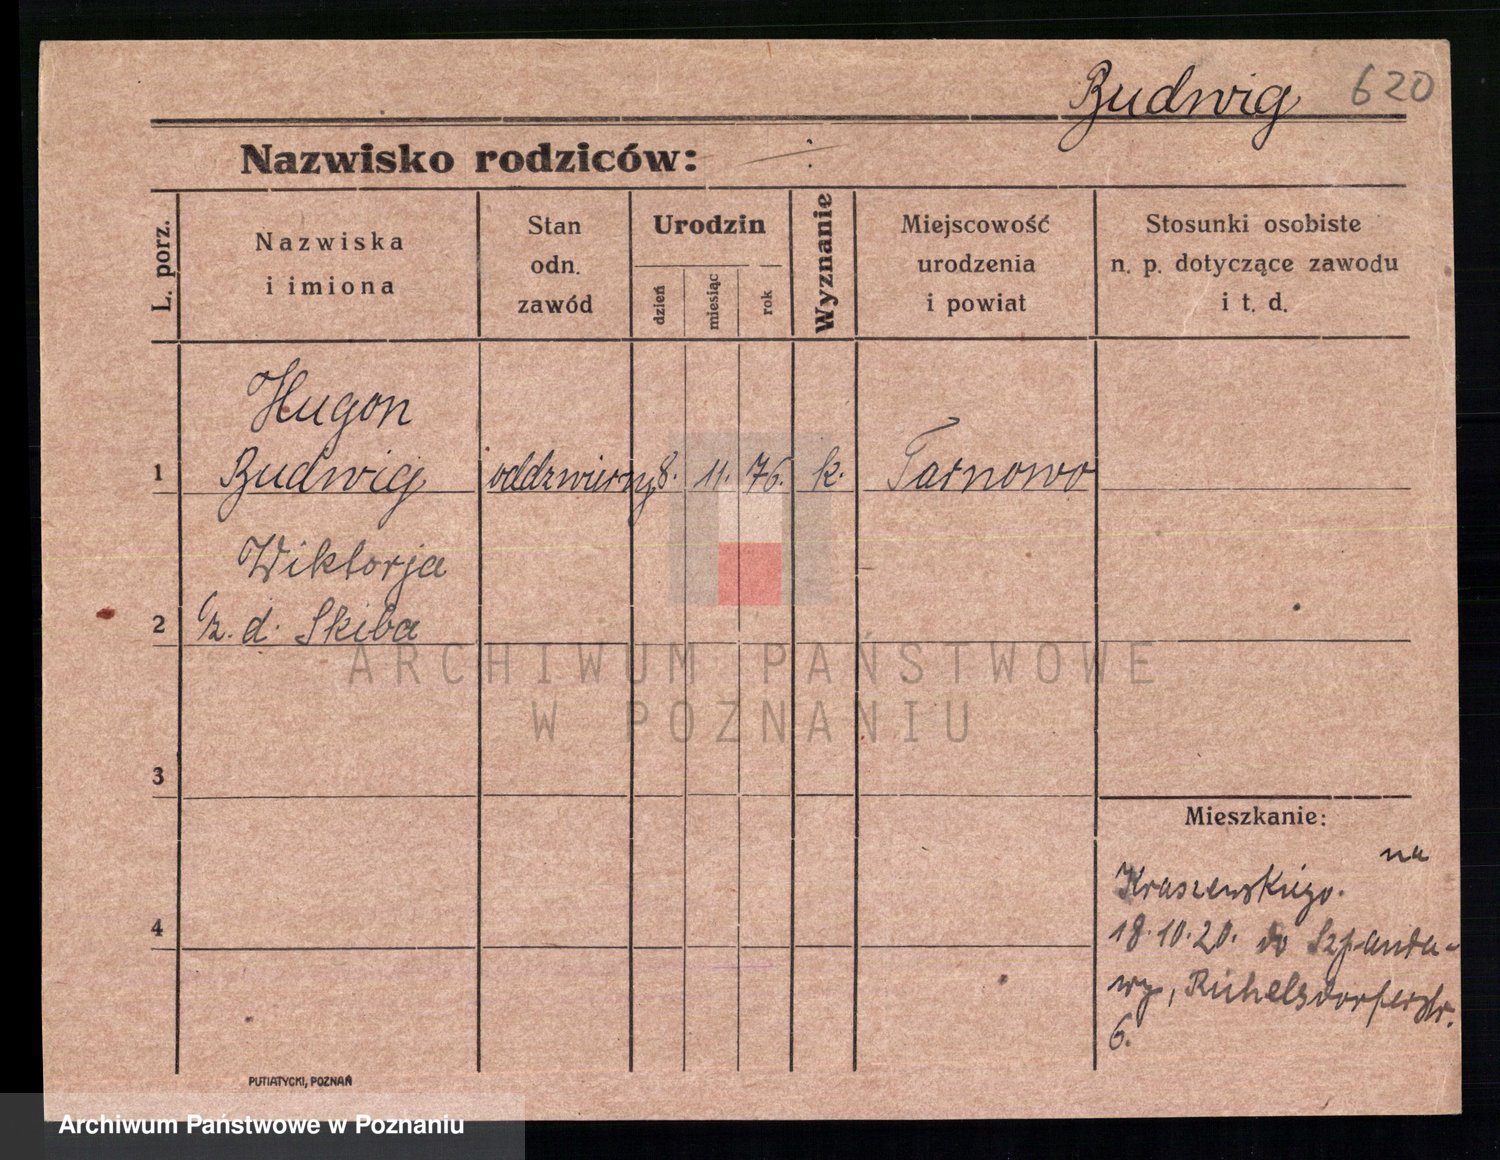 Budwig 620
Nazwisko rodziców:
L. porz.
Nazwiska
i imiona
Stan
odn.
zawód
Urodzin
dzień
miesiąc
rok
Wyznanie
Miejscowość
urodzenia
i powiat
Stosunki osobiste
n. p. dotyczące zawodu
i t. d.
Hugon
1 Budwig oddzwierny 8. 11. 76. k. Tarnowo
Wiktorja
2 z. d. Skiba
3
4
Mieszkanie:
na
Kraszewskiego.
18.10.20. do Szpanda-
wy, Ruhelsdorferstr.
6.
PUTIATYCKI, POZNAŃ
ARCHIWUM PAŃSTWOWE
W POZNANIU
Archiwum Państwowe w Poznaniu